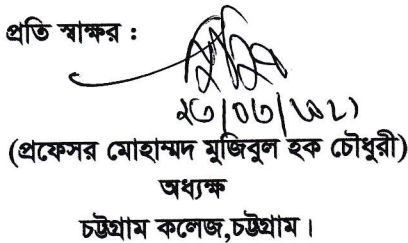 প্রতি স্বাক্ষর :
(প্রফেসর মোহাম্মদ মুজিবুল হক চৌধুরী)
অধ্যক্ষ
চট্টগ্রাম কলেজ,চট্টগ্রাম।